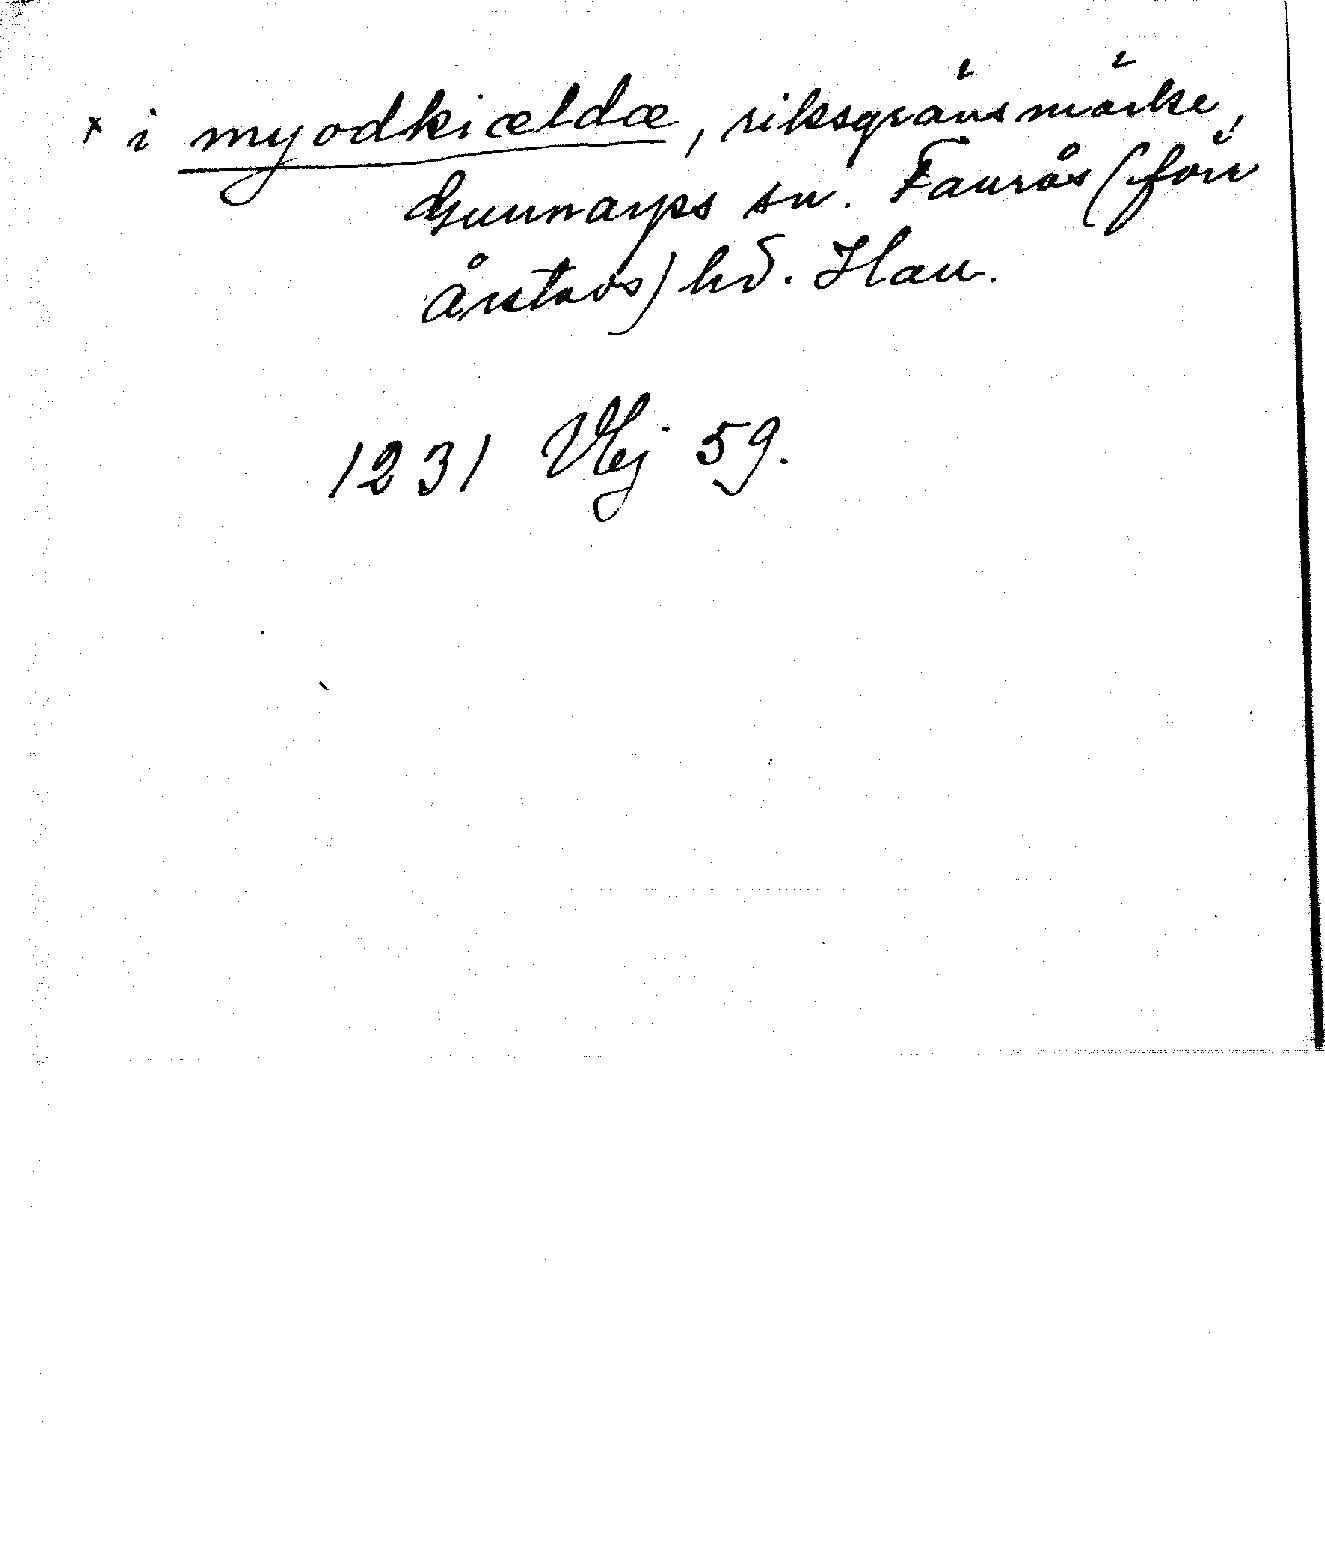 x i myodkiældæ, riksgränsmärke,
Gunnarps sn. Faurås (förr
Årstads) hd. Hall.
1231 VHj 59.